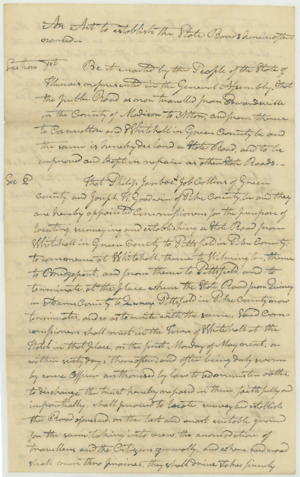 An Act to establish the State Roads herein after
named.
Section 1st Be it enacted by the People of the State of
Illinois represented in the General Assembly, That
the public Road as now travelled from Edwardsville
in the County of Madison to Alton, and from thence
to Carrollton and Whitehall in Green County be and
the same is hereby declared a State Road, and to be
improved and kept in repair as other State Roads.
Sec 2 That Philip Job Collins of Green
County and Joseph Goodwin of Pike County be and they
are hereby appointed Commissioners for the purpose of
locating, surveying and establishing a State Road from
Whitehall in Green County to Pittsfield in Pike County
to commence at Whitehall thence to Wilmington, thence
to Bridgeport, and from thence to Pittsfield and to
terminate at the place where the State Road from Quincy
in Adams County to Pittsfield in Pike County now
terminates, and so as to unite with the same, Said Com-
missioners shall meet in the Town of Whitehall at the
in that place, on the first Monday of May next, or
within sixty days thereafter, and after being duly sworn
by some Officer authorised by law to administer oaths
to discharge the trust hereby reposed in them faithfully and
impartially, shall proceed to locate survey and establish
the Road aforesaid, on the best and most suitable ground
for the same, taking into view the accommodation of
travellers and the Citizens generally, and where said road
shall cross they shall